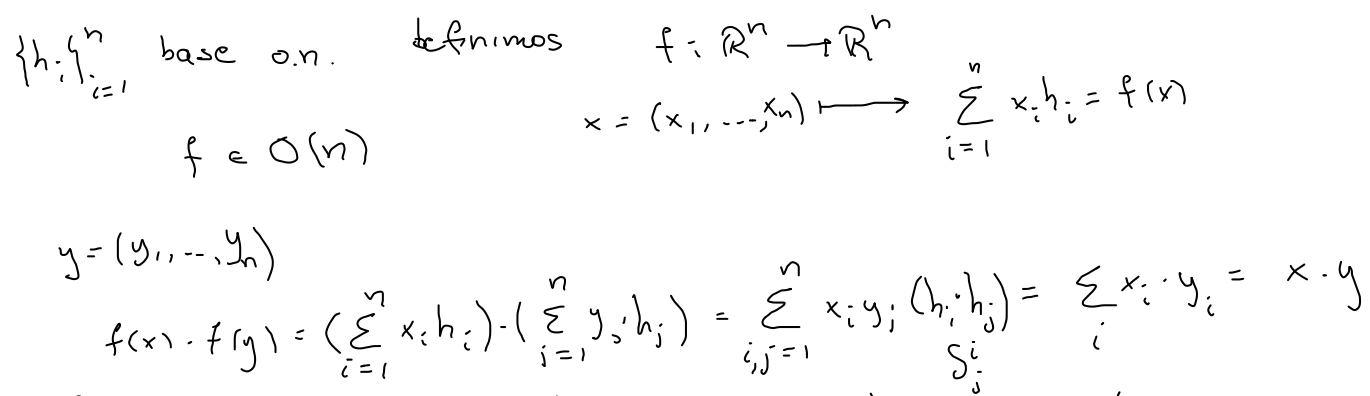 {h_i}_{i=1}^n base o.n. definimos f : ℝ^n → ℝ^n
x = (x_1, ..., x_n) ↦ ∑_{i=1}^n x_i h_i = f(x)
f ∈ O(n)
y = (y_1, ..., y_n)
f(x) · f(y) = (∑_{i=1}^n x_i h_i) · (∑_{j=1}^n y_j · h_j) = ∑_{i,j=1}^n x_i y_j (h_i · h_j) = ∑_i x_i · y_i = x · y
δ^i_j